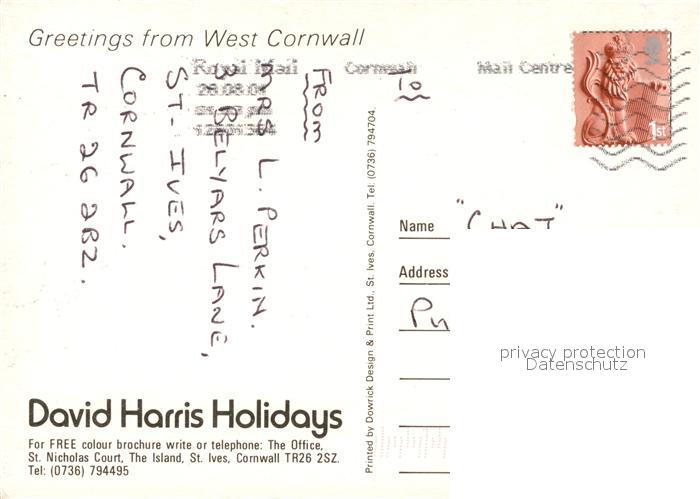 Greetings from West Cornwall
Royal Mail
Cornwall
Mail Centre
1st
FROM
MRS L. PERKIN.
3 BELYARS LANE,
ST. IVES,
CORNWALL.
TR 26 2BZ.
TO
Name "CHAT"
Address
Pu
Printed by Dowrick Design & Print Ltd., St. Ives, Cornwall. Tel: (0736) 794704.
privacy protection
Datenschutz
David Harris Holidays
For FREE colour brochure write or telephone: The Office,
St. Nicholas Court, The Island, St. Ives, Cornwall TR26 2SZ.
Tel: (0736) 794495